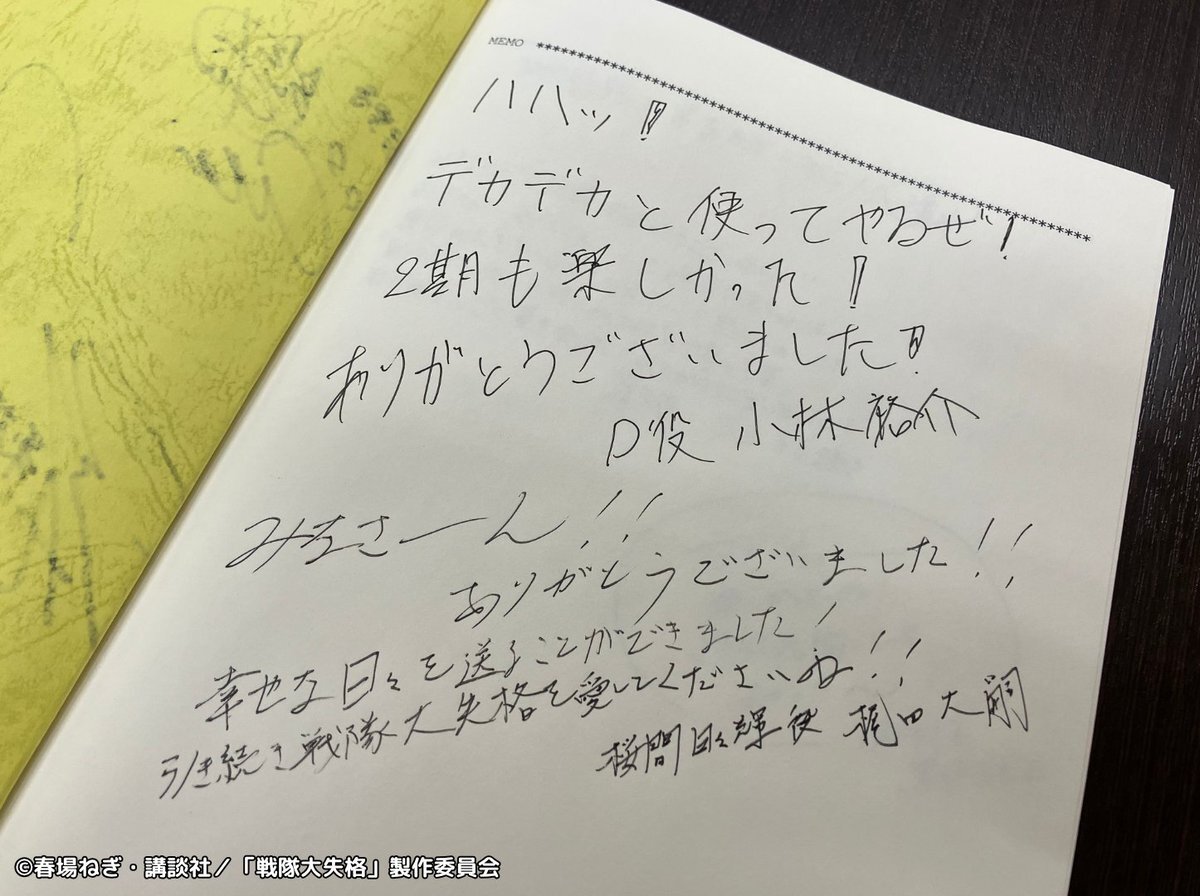 MEMO ****************************************
ハハッ!!
デカデカと使ってやるぜ!
2期も楽しかった!
ありがとうございました!!
D役 小林裕介
みなさーん!!
ありがとうございました!!
幸せな日々を送ることができました!
引き続き戦隊大失格を愛してくださいね!!
桜間日々輝役 梶田大嗣
©春場ねぎ・講談社／「戦隊大失格」製作委員会